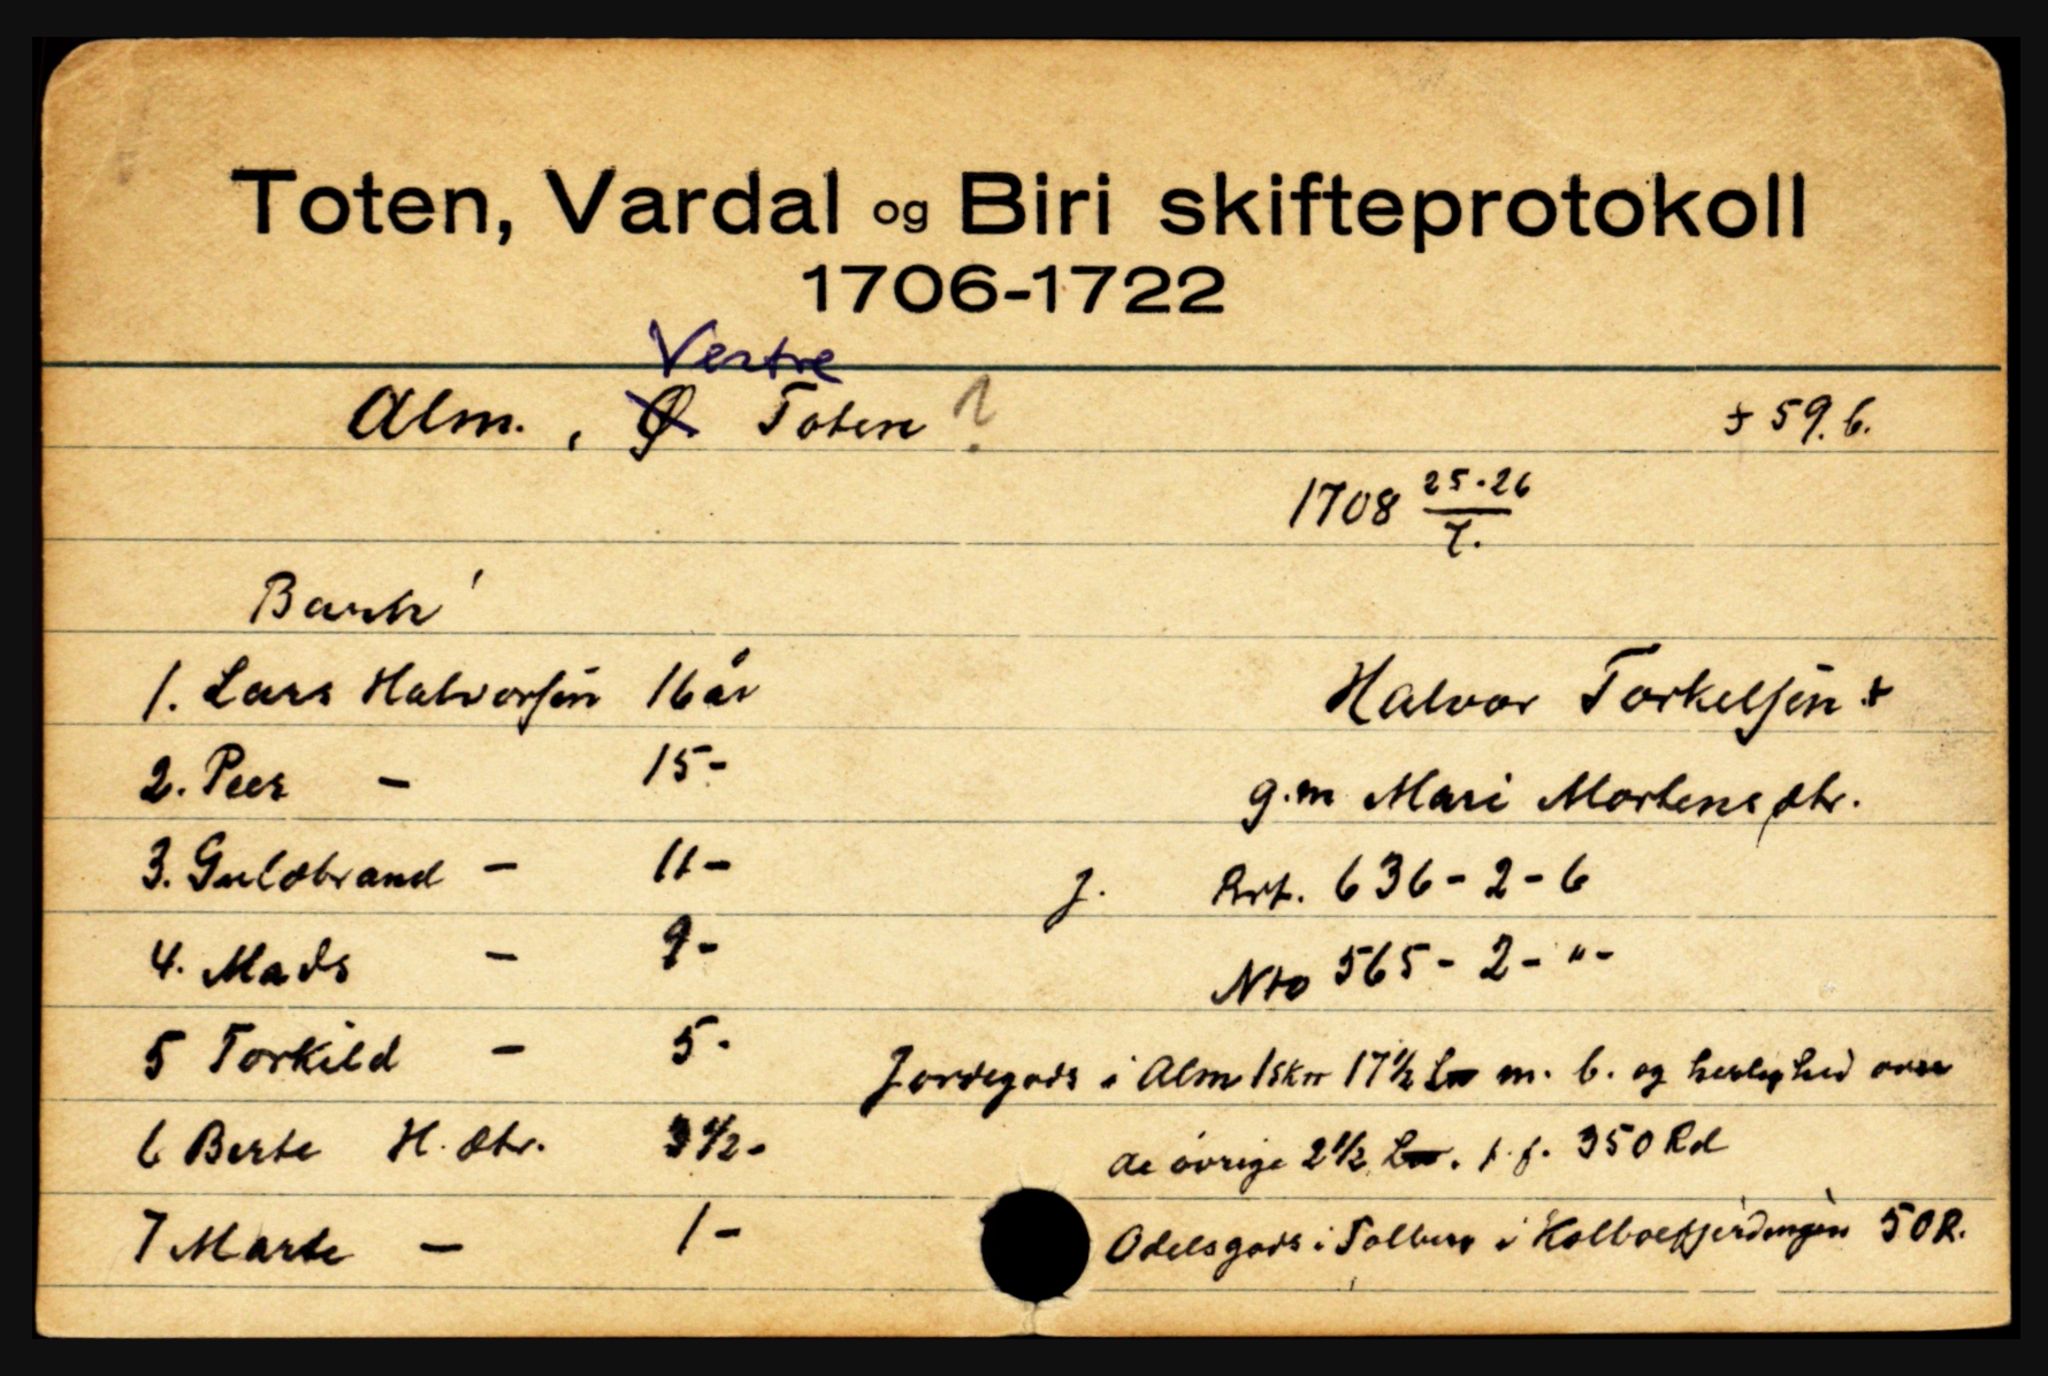 Toten, Vardal og Biri skifteprotokoll
1706-1722
Vestre
Alm. , Ø. Toten ?
f 59. b.
1708 25-26/7.
Barn:
1. Lars Halvorsen 16 år
2. Peer — 15-
3. Guldbrand — 11-
4. Mads — 9-
5 Torkild — 5-
6 Berte H. dtr. 3 1/2-
7 Marte — 1-
Halvor Torkelsen +
g.m Mari Mortensdtr.
J. Brt. 636-2-6
Nto 565-2-"-
Jordegods i Alm 1 skrr 17 1/2 m. b. og herlighed over
de övrige 2 1/2 . f. 350 Rd
Odelsgods i Tolberg i Kolboefjerdingen 50 R.